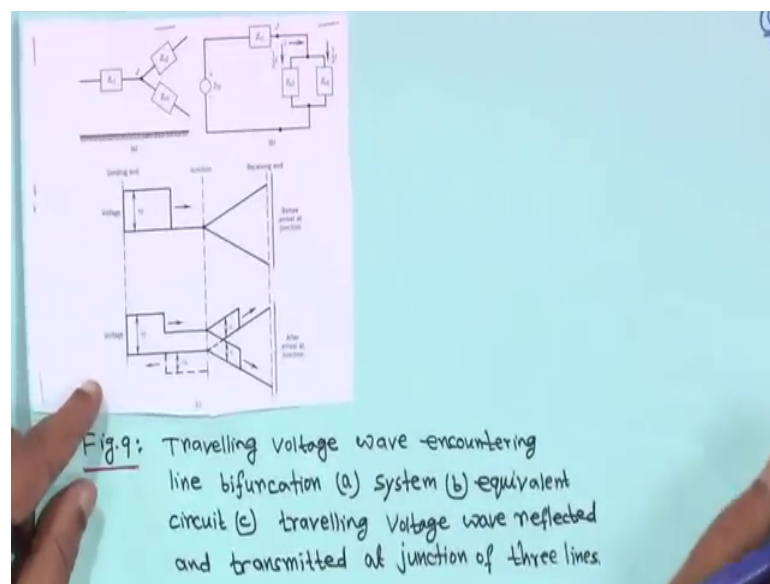 J
J
(a)
(b)
Sending end Junction Receiving end
Voltage
Before
arrival at
junction
Voltage
After
arrival at
junction
(c)
Fig.9: Travelling voltage wave encountering
line bifurcation (a) system (b) equivalent
circuit (c) travelling voltage wave reflected
and transmitted at junction of three lines.